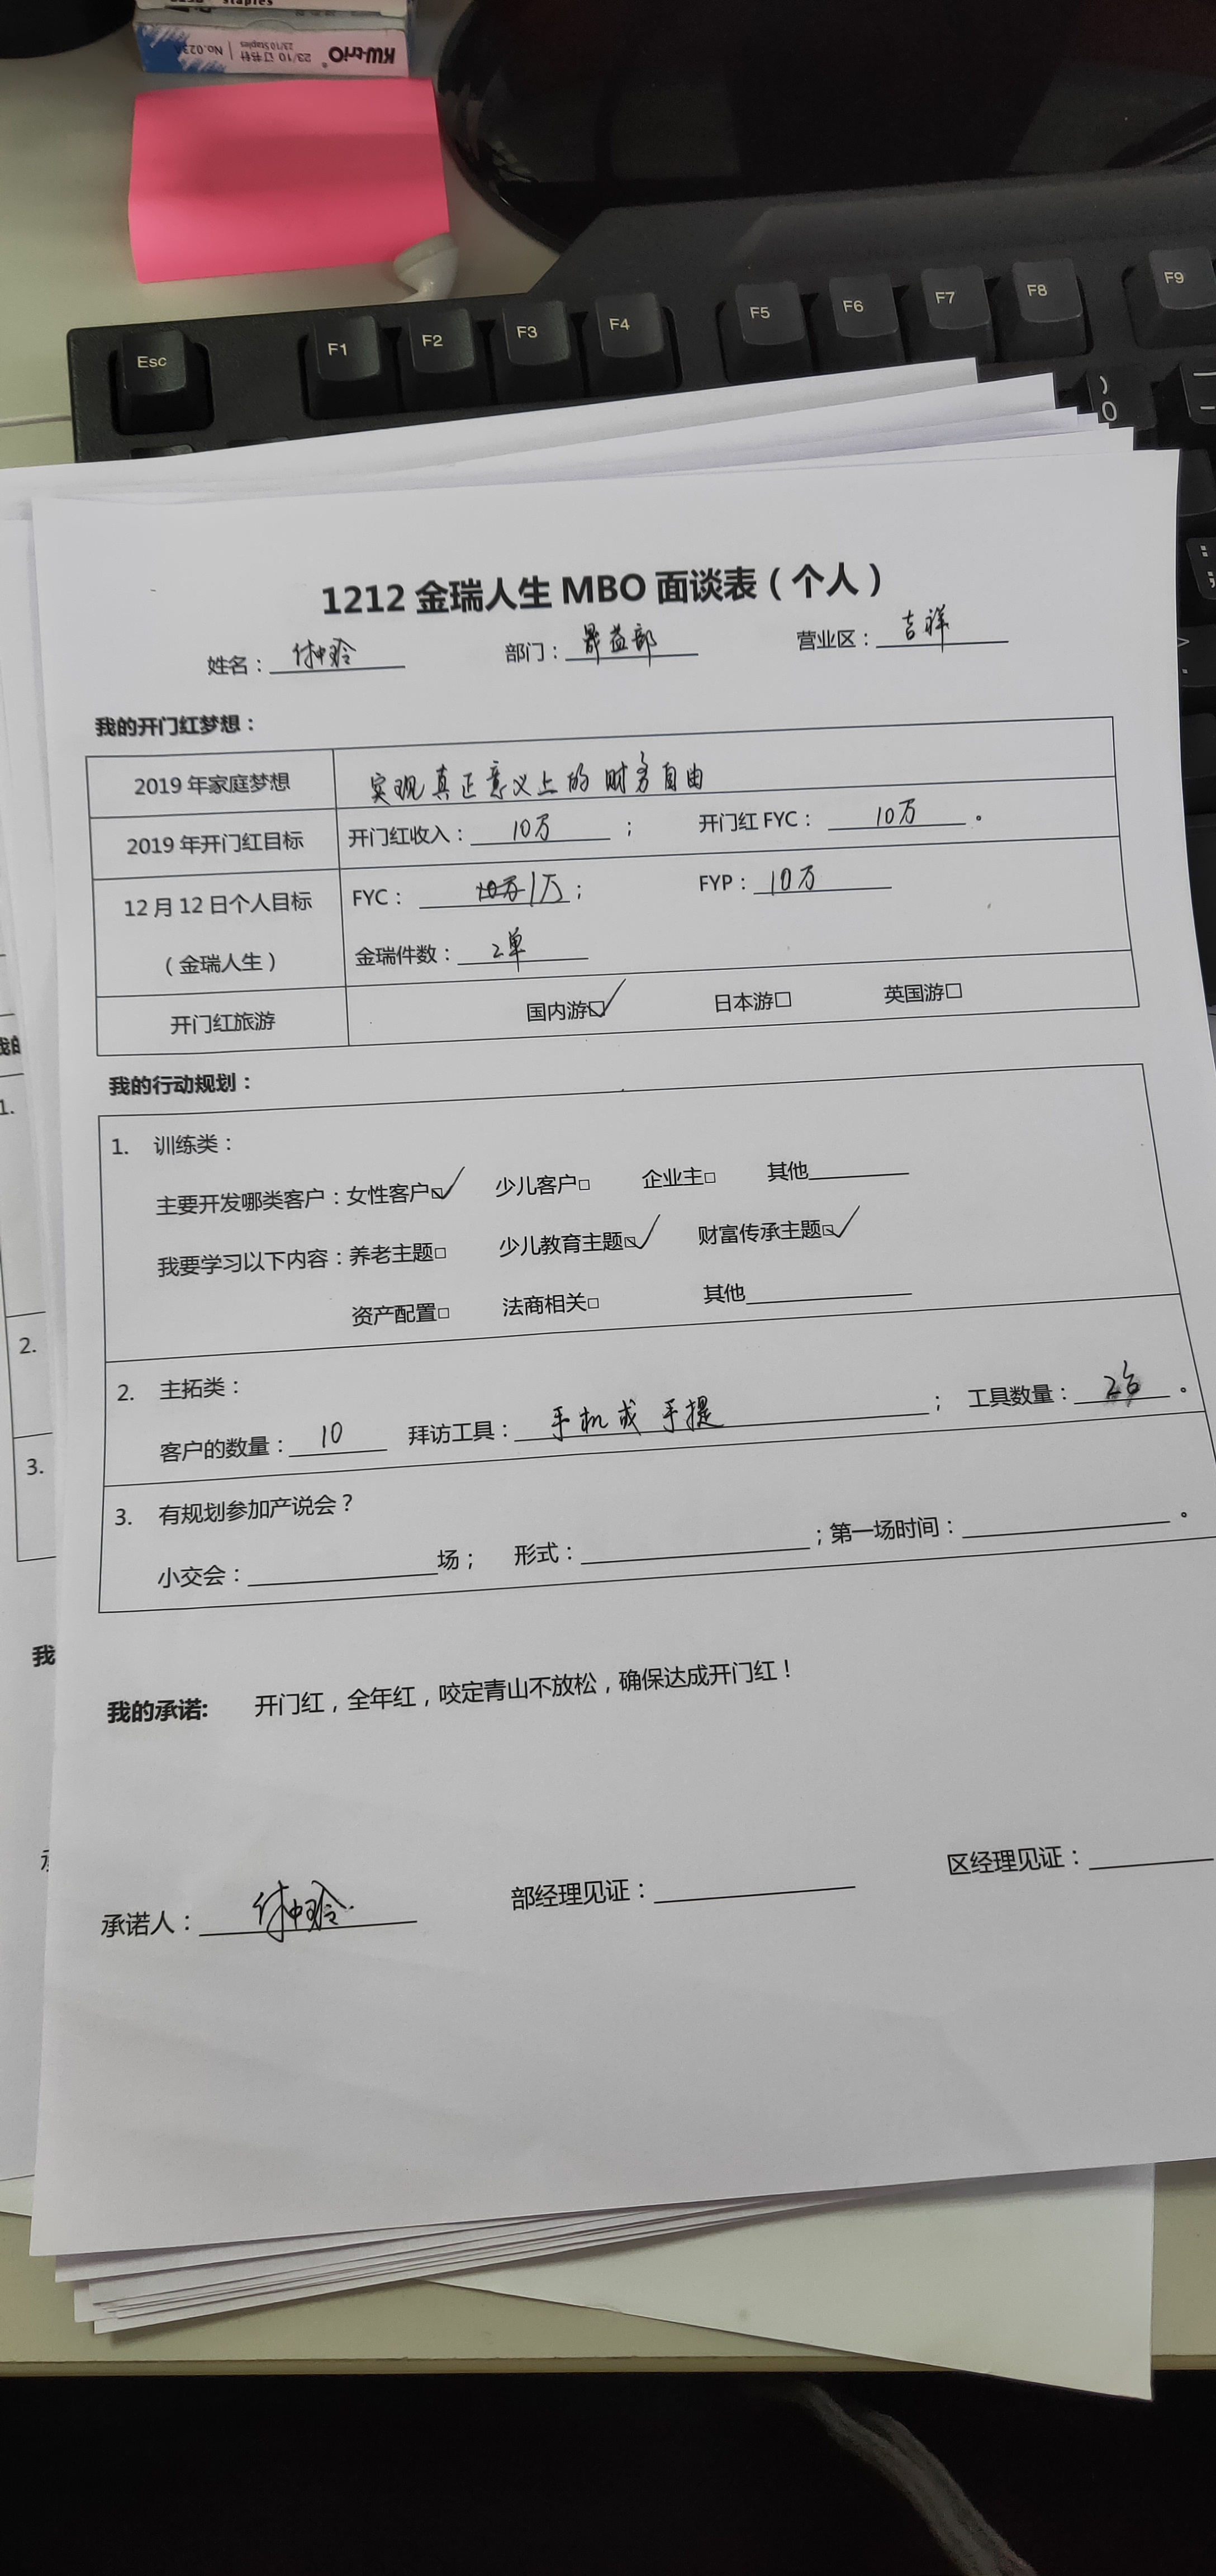 staples
KW-triO 23/10 订书针 No.023A
23/10 Staples
Esc F1 F2 F3 F4 F5 F6 F7 F8 F9
) 0
1212 金瑞人生 MBO 面谈表（个人）
姓名：付中玲 部门：晟益部 营业区：吉祥
我的开门红梦想：
2019 年家庭梦想 实现真正意义上的财务自由
2019 年开门红目标 开门红收入：10万； 开门红 FYC：10万。
12 月 12 日个人目标 FYC：1万； FYP：10万
（金瑞人生） 金瑞件数：2单
开门红旅游 国内游☑ 日本游□ 英国游□
我的行动规划：
1. 训练类：
主要开发哪类客户：女性客户☑ 少儿客户□ 企业主□ 其他
我要学习以下内容：养老主题□ 少儿教育主题☑ 财富传承主题☑
资产配置□ 法商相关□ 其他
2. 主拓类：
客户的数量：10 拜访工具：手机或手提； 工具数量：2台。
3. 有规划参加产说会？
小交会：场； 形式：；第一场时间：。
我的承诺: 开门红，全年红，咬定青山不放松，确保达成开门红！
承诺人：付中玲 部经理见证： 区经理见证：
1.
2.
3.
我